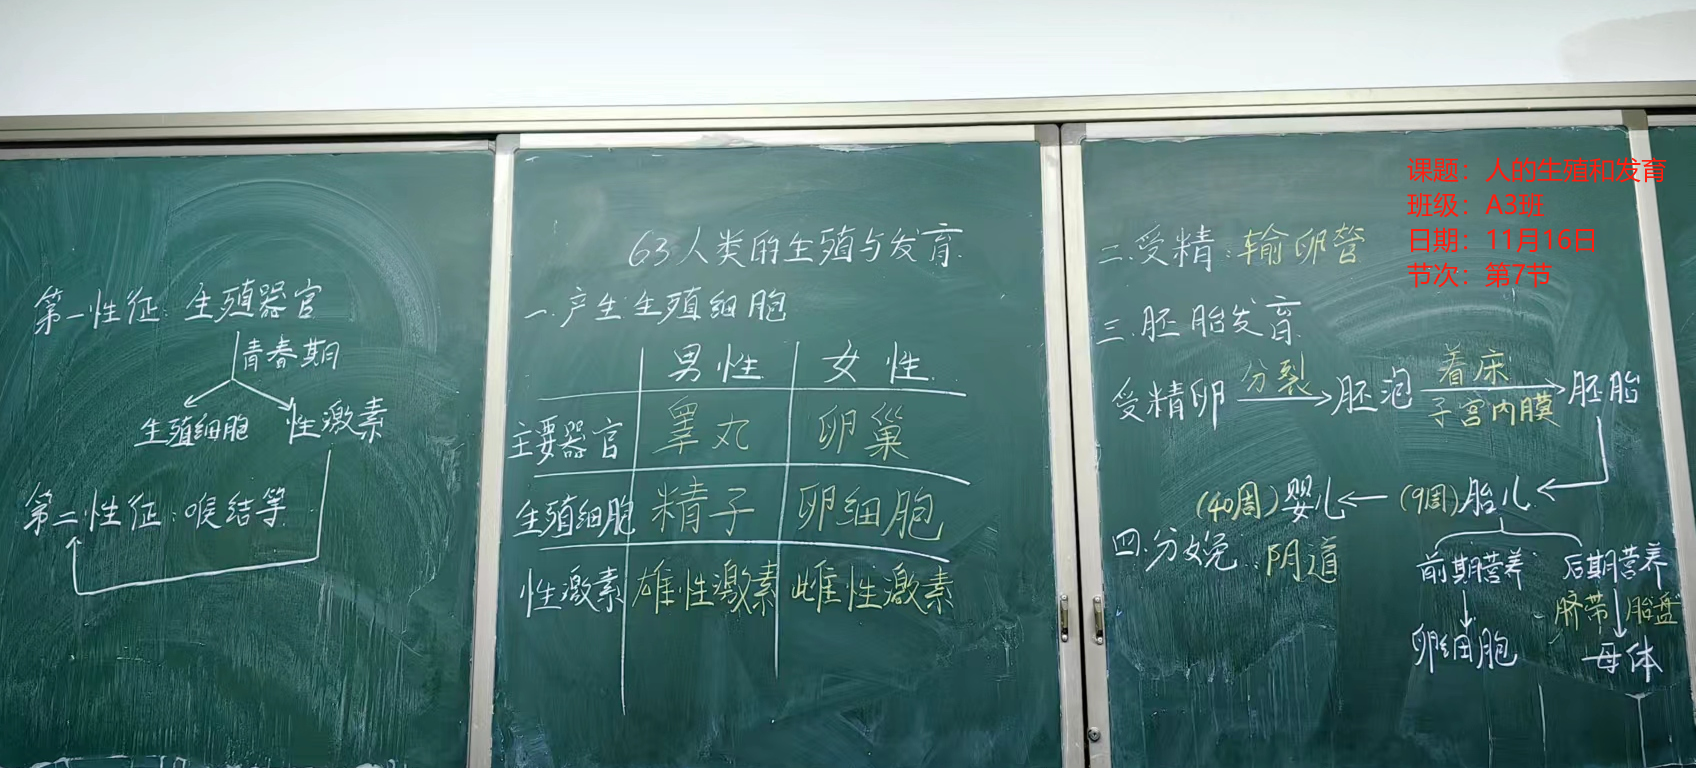 第一性征:生殖器官
青春期
生殖细胞 性激素
第二性征:喉结等
63人类的生殖与发育
一.产生生殖细胞
男性 女性
主要器官 睾丸 卵巢
生殖细胞 精子 卵细胞
性激素 雄性激素 雌性激素
课题：人的生殖和发育
班级：A3班
日期：11月16日
节次：第7节
二.受精:输卵管
三.胚胎发育
受精卵 分裂 胚泡 着床 子宫内膜 胚胎
(40周)婴儿 (9周)胎儿
四.分娩:阴道
前期营养 后期营养
脐带 胎盘
卵细胞 母体